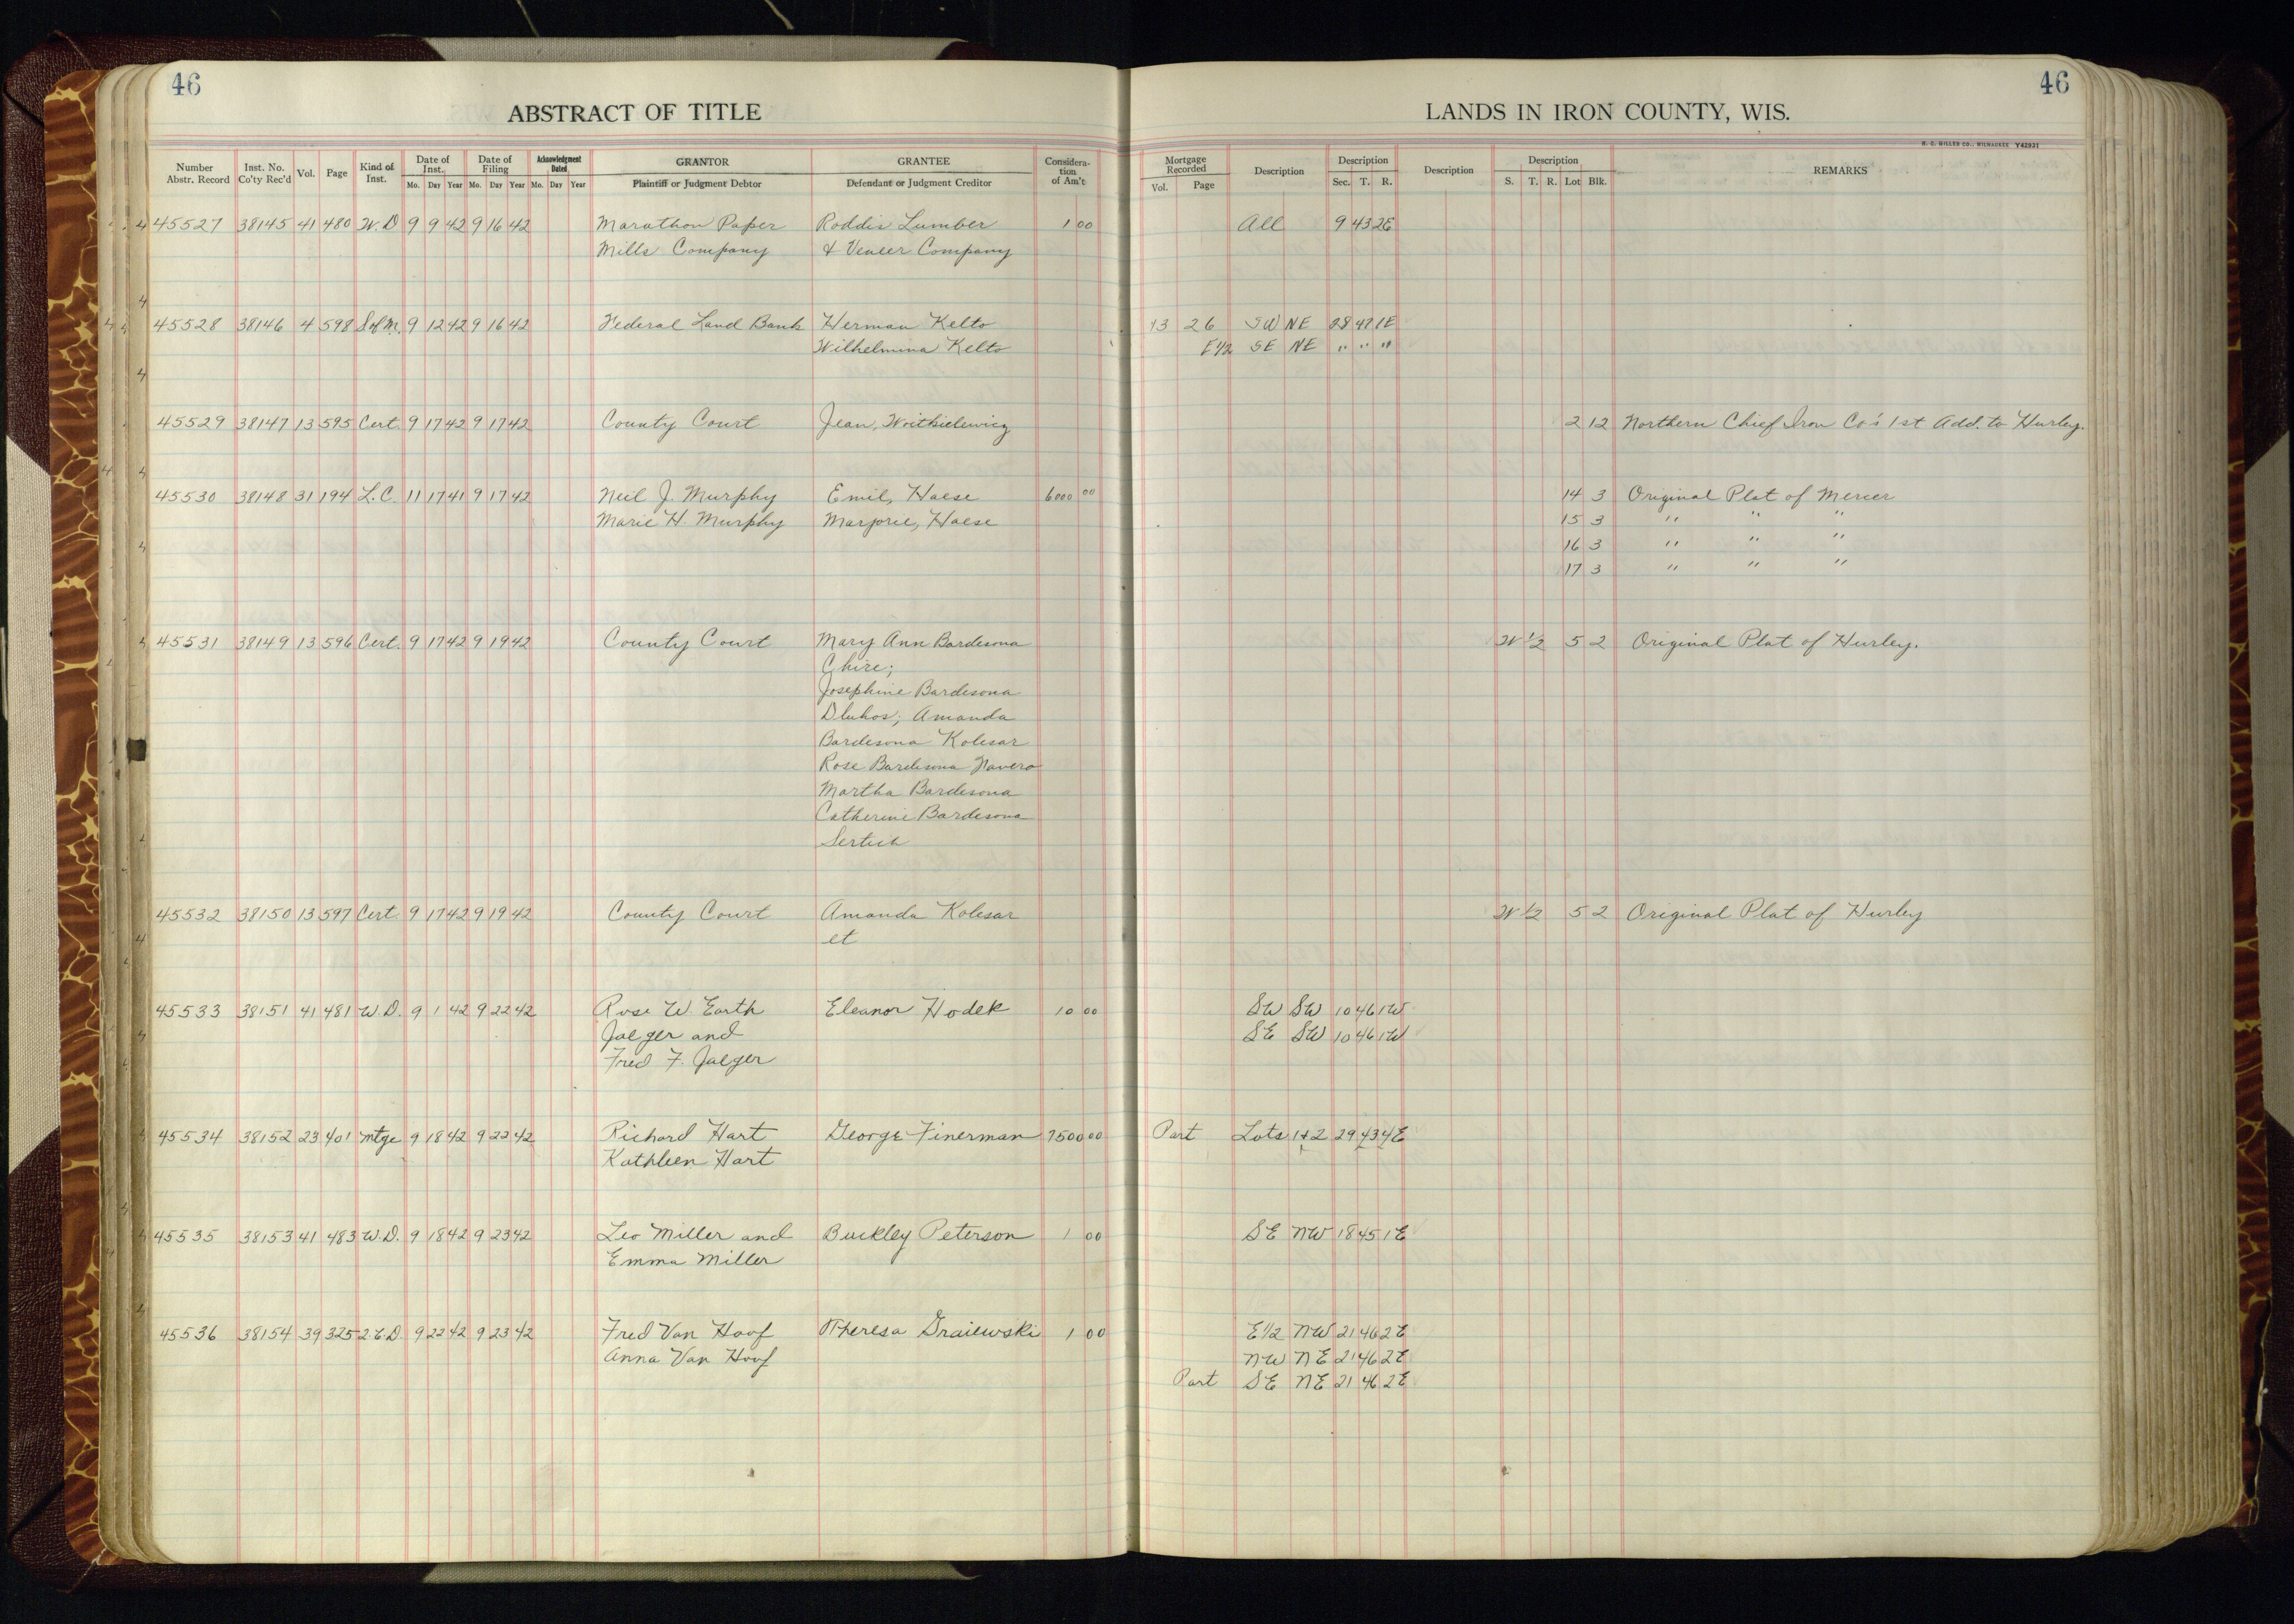 46
46
ABSTRACT OF TITLE
LANDS IN IRON COUNTY, WIS.
H. C. MILLER CO., MILWAUKEE Y42931
Number Abstr. Record Inst. No. Co'ty Rec'd Vol. Page Kind of Inst. Date of Inst. Mo. Day Year Date of Filing Mo. Day Year Acknowledgment Dated Mo. Day Year GRANTOR Plaintiff or Judgment Debtor GRANTEE Defendant or Judgment Creditor Considera-tion of Am't Mortgage Recorded Vol. Page Description Description Sec. T. R. Description Description S. T. R. Lot Blk. REMARKS
45527 38145 41 480 W.D 9 9 42 9 16 42 Marathon Paper Roddis Lumber 1 00 All 9 43 2E
Mills Company & Veneer Company
45528 38146 4 598 S of M. 9 12 42 9 16 42 Federal Land Bank Herman Kelto 13 26 SW NE 28 47 1E
Wilhelmina Kelto E 1/2 SE NE " " "
45529 38147 13 595 Cert. 9 17 42 9 17 42 County Court Jean, Woitkielewicz 2 12 Northern Chief Iron Co's 1st Add. to Hurley.
45530 38148 31 194 L.C. 11 17 41 9 17 42 Neil J. Murphy Emil, Haese 6000 00 14 3 Original Plat of Mercer
Marie H. Murphy Marjorie, Haese 15 3 " " "
16 3 " " "
17 3 " " "
45531 38149 13 596 Cert. 9 17 42 9 19 42 County Court Mary Ann Bardesona W 1/2 5 2 Original Plat of Hurley.
Chire;
Josephine Bardesona
Dluhos; Amanda
Bardesona Kolesar
Rose Bardesona Navero
Martha Bardesona
Catherine Bardesona
Sertich
45532 38150 13 597 Cert. 9 17 42 9 19 42 County Court Amanda Kolesar W 1/2 5 2 Original Plat of Hurley
et
45533 38151 41 481 W.D. 9 1 42 9 22 42 Rose W. Earth Eleanor Hodek 10 00 SW SW 10 46 1W
Jaeger and SE SW 10 46 1W
Fred F. Jaeger
45534 38152 23 401 Mtge 9 18 42 9 22 42 Richard Hart George Finerman 7500 00 Part Lots 1+2 29 43 4E
Kathleen Hart
45535 38153 41 483 W.D. 9 18 42 9 23 42 Leo Miller and Buckley Peterson 1 00 SE NW 18 45 1E
Emma Miller
45536 38154 39 325 2.C.D. 9 22 42 9 23 42 Fred Van Hoof Theresa Graiewski 1 00 E 1/2 NW 21 46 2E
Anna Van Hoof NW NE 21 46 2E
Part SE NE 21 46 2E